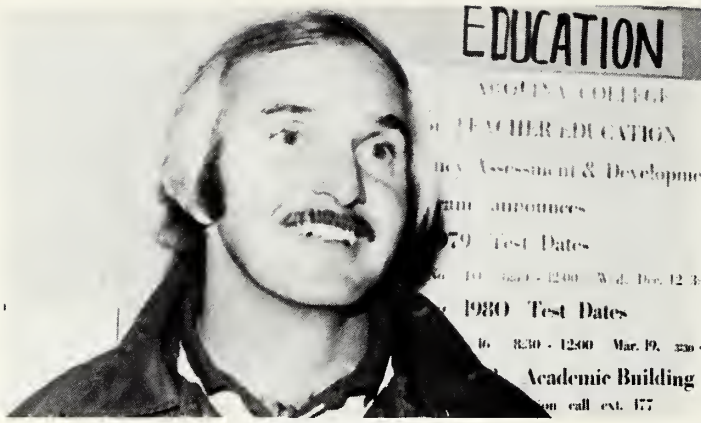 EDUCATION
COLLEGE
TEACHER EDUCATION
Assessment & Developme
announces
79 Test Dates
10 - 12:00 Wed. Dec. 12
1980 Test Dates
16 8:30 - 12:00 Mar. 19,
Academic Building
on call ext. 177